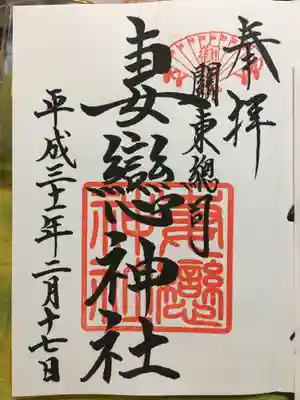 奉拜
關東總司
妻戀神社
平成三十一年二月十七日
妻戀神社